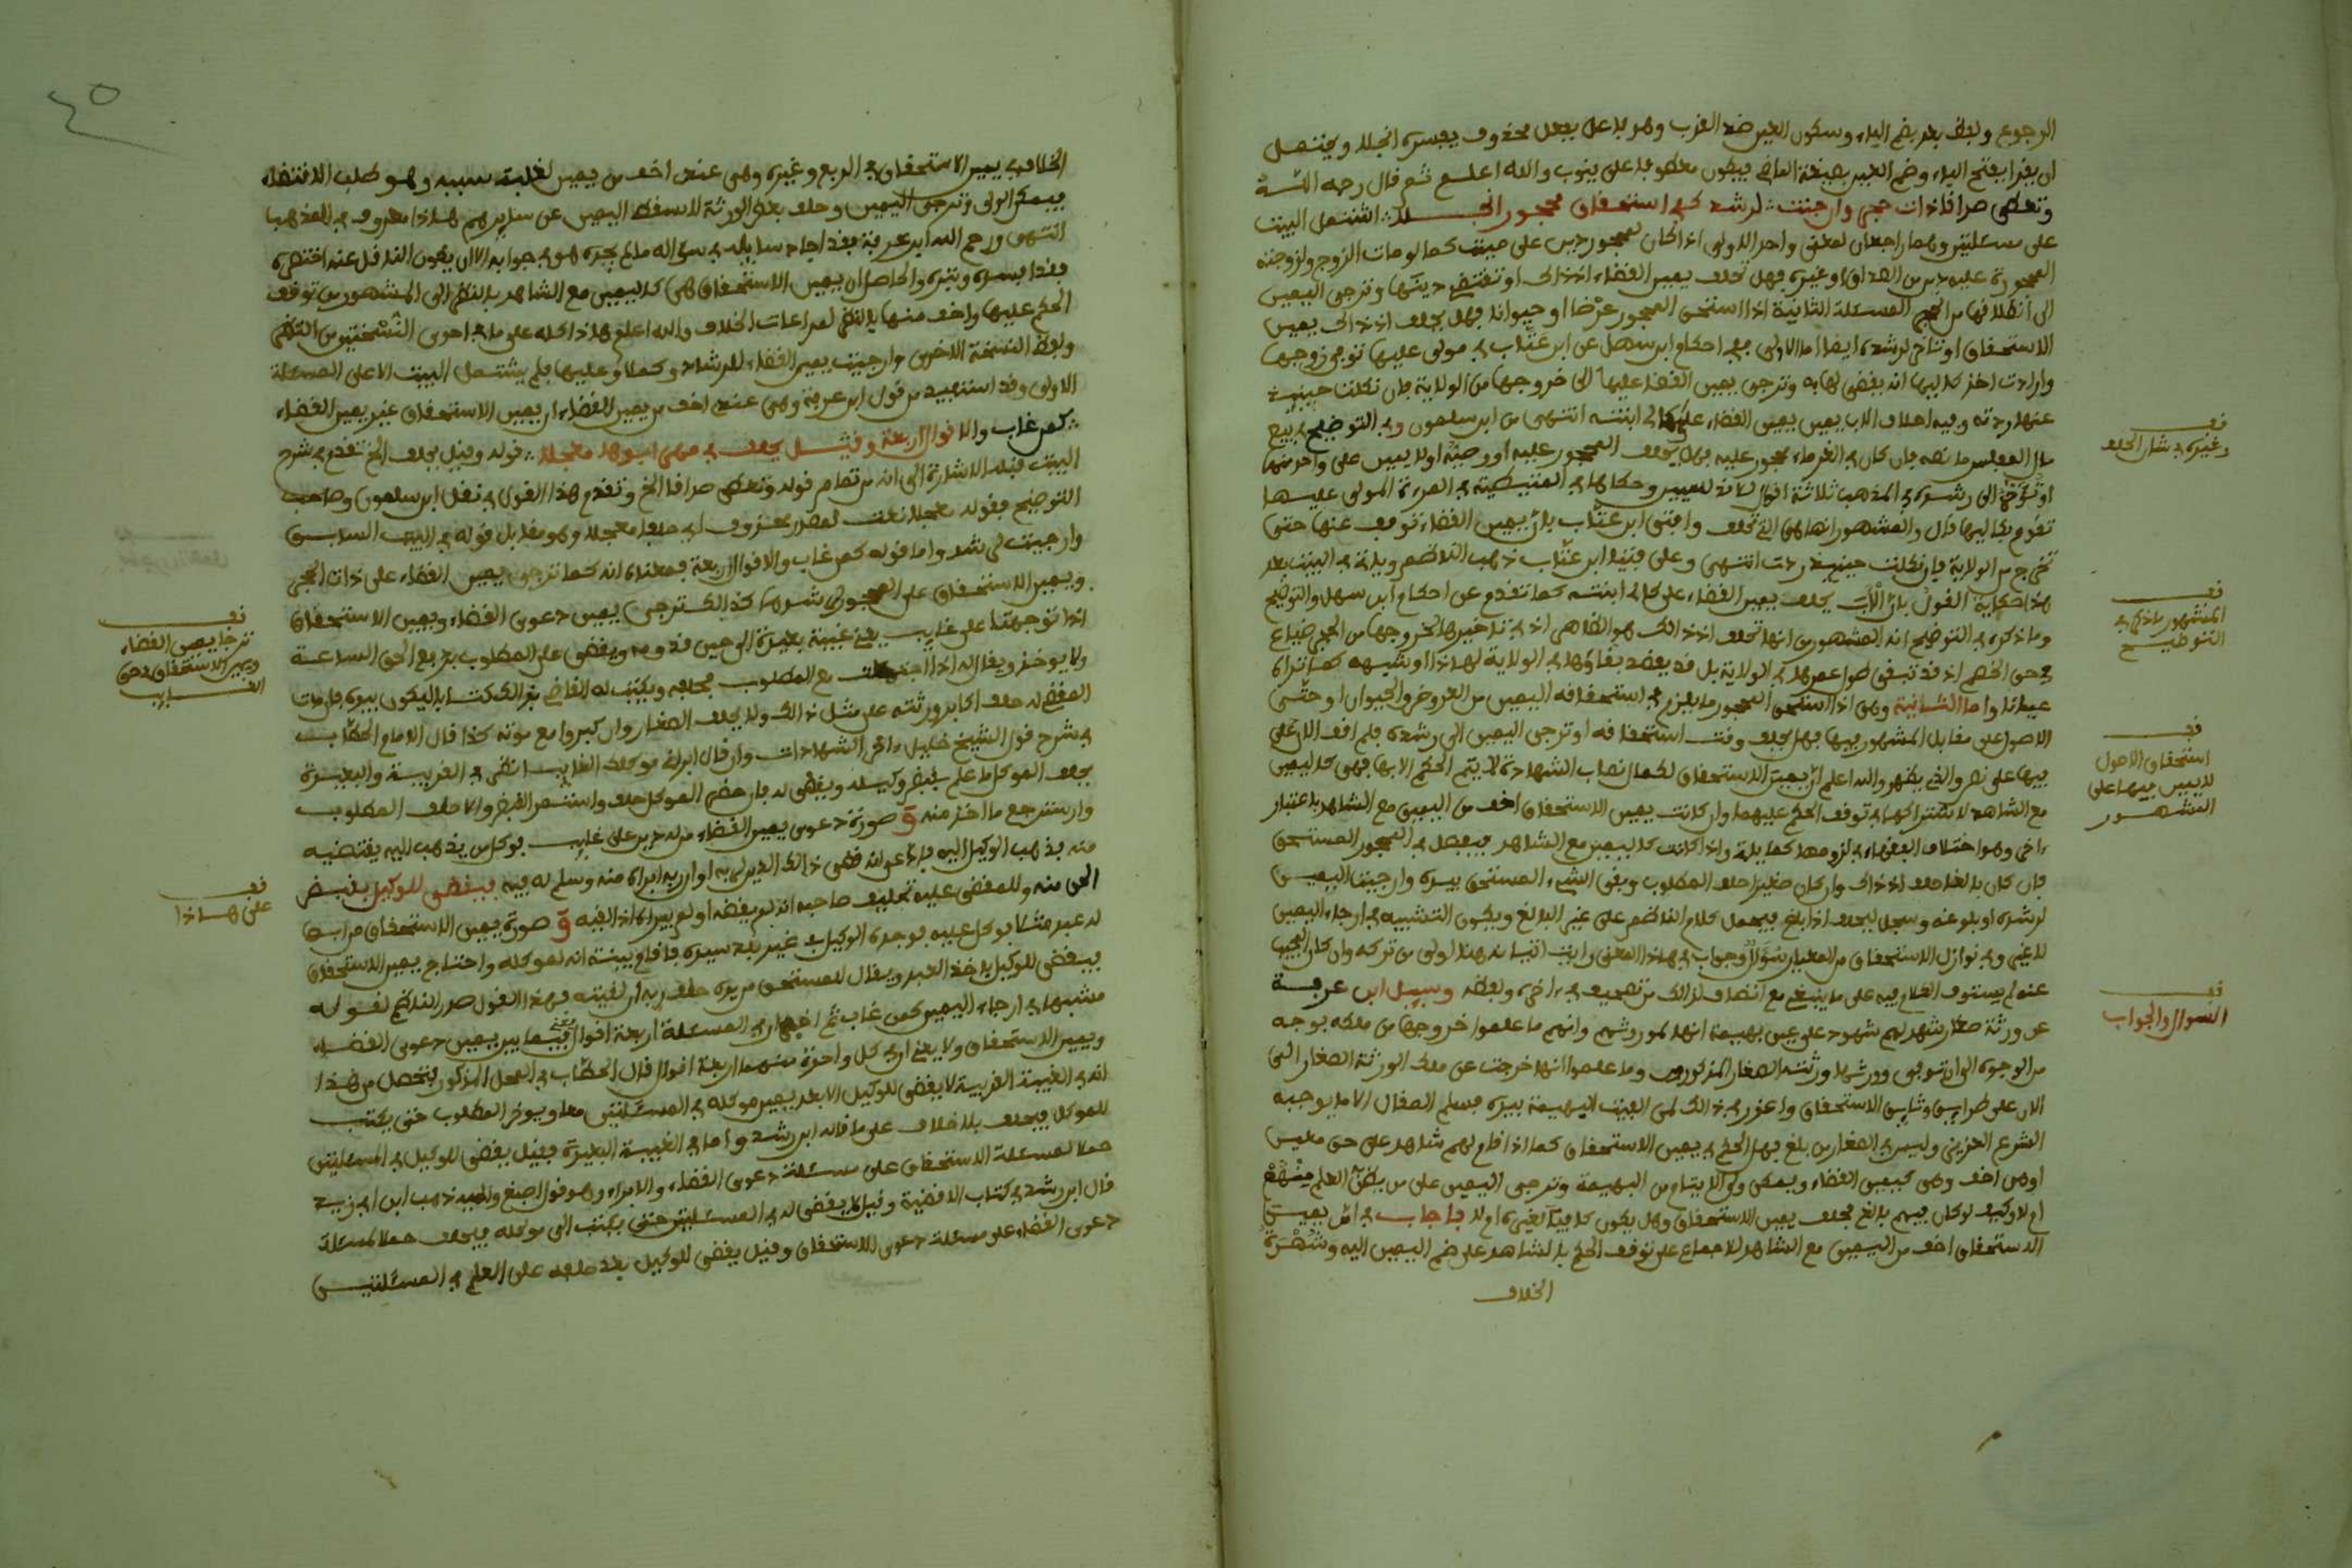 الرجوع ولفظ بعد بضم الباء وسكون العين ضد القرب وهو فاعل بفعل محذوف يفسره انجلا ويحتمل
ان يقرا بفتح الباء وضم العين بصيغة الماضي فيكون معطوفا على ينوب والله اعلم ثم قال رحمه الله
وتعطى صداقا ذات حجر وارجئت لرشد كفي استحقاق محجور انجلا اشتمل البيت
على مسئلتين وهما راجعان لمعنى واحد الاولى اذا كان لمحجور دين على ميت كما لو مات الزوج ولزوجته
المحجورة عليه دين من الصداق او غيره فهل تحلف يمين القضاء اذ ذاك او تقتضي دينها وترجى اليمين
الى انطلاقها من الحجر المسئلة الثانية اذا استحق المحجور عرضا او حيوانا فهل يحلف اذ ذاك يمين
الاستحقاق او تاخر لرشده ايضا اما الاولى ففي احكام ابن سهل عن ابن عتاب في مولى عليها توفي زوجها
وارادت اخذ كاليها انه يقضى لها به وترجى يمين القضا عليها الى خروجها من الولاية فان نكلت حينئذ
عنها ردته وفيه احلاف الاب يمين القضاء على كالي ابنته انتهى من ابن سلمون وفي التوضيح في بيع
مال المفلس ما نصه فان كان في الغرماء محجور عليه فهل يحلف المحجور عليه او وصيه اولا يمين على واحد منهما
او تؤخر الى رشده في المذهب ثلاثة اقوال
تقوم بكاليها قال والمشهور انها هي التي تحلف وافتى ابن عتاب بان يمين القضاء توقف عنها حتى
تخرج من الولاية فان نكلت حينئذ ردت انتهى وعلى فتيا ابن عتاب ذهب الناظم وياتي في البيت بعد
هذا حكاية القول بان الاب يحلف يمين القضاء على كالي ابنته كما تقدم عن احكام ابن سهل والتوضيح
وما ذكره في التوضيح انه المشهور من انها تحلف اذ ذاك هو الظاهر اذ في تاخيرها لخروجها من الحجر ضياع
لحق الخصم اذ قد تبقى طول عمرها في الولاية بل قد يقصد بقاؤها في الولاية لهاذا او شبهه كما تراه
عيانا واما الثانية وهي اذا استحق المحجور ما يلزم في استحقاقه اليمين من العروض والحيوان او حتى
الاصول على مقابل المشهور فيها فهل يحلف وقت استحقاقه او ترجى اليمين الى رشده فلم اقف الان على
فيها على نص والذي يظهر والله اعلم ان يمين الاستحقاق لكمال نصاب الشهادة لا يتم الحكم الا بها فهي كاليمين
مع الشاهد لاشتراكهما في توقف الحكم عليهما وان كانت يمين الاستحقاق اخف من اليمين مع الشاهد باعتبار
اخر وهو اختلاف الفقهاء في لزومها كما ياتي واذا كانت كاليمين مع الشاهد فيفصل في المحجور المستحق
فان كان بالغا حلف اذ ذاك وان كان صغيرا حلف المطلوب وبقي الشيء المستحق بيده وارجئت اليمين
لرشده او بلوغه وسجل ليحلف اذا بلغ فيحمل كلام الناظم على غير البالغ ويكون التشبيه في ارجاء اليمين
لا غير وفي نوازل الاستحقاق من المعيار سؤال وجواب في هذا المعنى رايت اتيانه هنا اولى من تركه وان كان المجيب
عنه لم يستوف الكلام فيه على ما ينبغي مع انصاف لذالك من تصحيف في اخره ولفظه وسيل ابن عرفة
عن ورثة صغار شهد لهم شهود على عين بهيمة انها لموروثهم وانهم ما علموا خروجها من ملكه بوجه
من الوجوه الى ان توفي وورثها ورثته الصغار المذكورون وما علموا انها خرجت عن ملك الورثة الصغار الى
الان على
الشرع العزيز وليس في الصغار من بلغ فهل الحكم في يمين الاستحقاق كما اذا قام لهم شاهد على حق معين
او هي اخف وهي كيمين القضاء ويمكن ولي الايتام من البهيمة وترجى اليمين على من يظن العلم منهم
ام لا وكيف لو كان فيهم بالغ فحلف يمين الاستحقاق وهل يكون كافيا لغيره اولا فاجاب في ان يمين
الاستحقاق اخف من اليمين مع الشاهد للاجماع على توقف الحكم بالشاهد على ضم اليمين اليه وشهرة
الخلاف
قف
وغيره بشار الحلف
قف
المشهور ما ذكره في
التوضيح
قف
استحقاق الاصول
لا يمين فيها على
المشهور
قف
السؤال والجواب
٤٥
الخلاف في يمين الاستحقاق في الربع وغيره وهي عندي اخف من يمين لغلبة سببه وهو طلب الاقتضاء
فيمكن الولي وترجى اليمين وحلف بعض الورثة لا يسقط اليمين عن سايرهم هاذا معروف في المذهب
انتهى ورحم الله ابن عرفة فقد اجاد سايله في سؤاله ما لم يجده هو في جوابه الا ان يكون الناقل عنه اختصره
فقدا بسره ونثره والحاصل ان يمين الاستحقاق هي كاليمين مع الشاهد بالنظر الى المشهور من توقف
الحكم عليها واخف منها بالنظر لمراعات الخلاف والله اعلم هاذا كله على ما في احدى النسختين من النظم
ولفظ النسخة الاخرى وارجئت يمين القضاء للرشاد وكملا وعليها فلم يشتمل البيت الا على المسئلة
الاولى وقد استفيد من قول ابن عرفة وهي عندي اخف من يمين القضاء ان يمين الاستحقاق غير يمين القضاء
كمن غاب والاقوال اربعة وقيل يحلف في مهر ابوها معجلا قوله وقيل يحلف الخ تقدم في شرح
البيت قبله الاشارة الى انه من تمام قوله وتعطى صداقا الخ وتقدم هذا القول في نقل ابن سلمون وصاحب
التوضيح فقوله معجلا نعت لمصدر محذوف اي حلفا معجلا وهو مقابل قوله في البيت السابق
وارجئت لرشد واما قوله كمن غاب والاقوال اربعة فمعناه انه كما ترجى يمين القضاء على ذات الحجر
ويمين الاستحقاق على المحجور لرشدهما كذالك ترجى يمين دعوى القضاء ويمين الاستحقاق
اذا توجهتا على غايب يعني غيبة بعيدة الى حين قدومه ويقضى على المطلوب بدفع الحق الساعة
ولا يوخذ ويقال له اذا اجتمعت مع المطلوب فحلفه ويكتب له القاضي بذالك كتابا ليكون بيده فان مات
المقضي له حلف اكابر ورثته على مثل ذالك ولا يحلف الصغار وان كبروا مع موته كذا قال الامام الحطاب
في شرح قول الشيخ خليل اخر الشهادات وان قال ابراني موكلك الغايب انظر في القريبة والبعيدة
يحلف الموكل ما علم بقبض وكيله ويقضى له فان حضر الموكل حلف واستمر القبض والا حلف المطلوب
واسترجع ما اخذ منه و صورة دعوى يمين القضاء من له دين على غايب فوكل من يذهب اليه يقتضيه
منه فذهب الوكيل اليه فادعى انه قضى ذالك الدين لربه او ان ربه ابراه منه وسلم له فيه فيقضى للوكيل بقبض
الحق منه وللمقضي عليه تحليف صاحبه انه لم يقضه او لم يبراه اذا لقيه و صورة يمين الاستحقاق من ابق
له عبد مثلا فوكل عليه فوجده الوكيل في غير بلد سيده فاقام بينة انه لموكله واحتاج يمين الاستحقاق
فيقضى للوكيل باخذ العبد ويقال للمستحق من يده حلف ربه ان لقيته فهذا القول صدر الناظم لقوله
مشبها في ارجاء اليمين كمن غاب ثم اخبر ان في المسئلة اربعة اقوال يعني فيما بين يمين دعوى القضاء
ويمين الاستحقاق ولا يعني ان في كل واحدة منهما اربعة اقوال قال الحطاب في المحل المذكور يتحصل من هذا
انه في الغيبة القريبة لا يقضى للوكيل الا بعد يمين موكله في المسئلتين معا ويوخر المطلوب حتى يكتب
للموكل فيحلف بلا خلاف على ما قاله ابن رشد واما في الغيبة البعيدة فقيل يقضى للوكيل في المسئلتين
حملا لمسئلة الاستحقاق على مسئلة دعوى القضاء والابراء وهو قول اصبغ واليه ذهب ابن ابي زيد
قال ابن رشد في كتاب الاقضية وقيل لا يقضى له في المسئلتين حتى يكتب الى موكله فيحلف حملا لمسئلة
دعوى القضاء على مسئلة دعوى الاستحقاق وقيل يقضى للوكيل بعد حلفه على العلم في المسئلتين
قف
ترجا يمين القضاء
ويمين الاستحقاق في حق
الغايب
قف
على هاذا